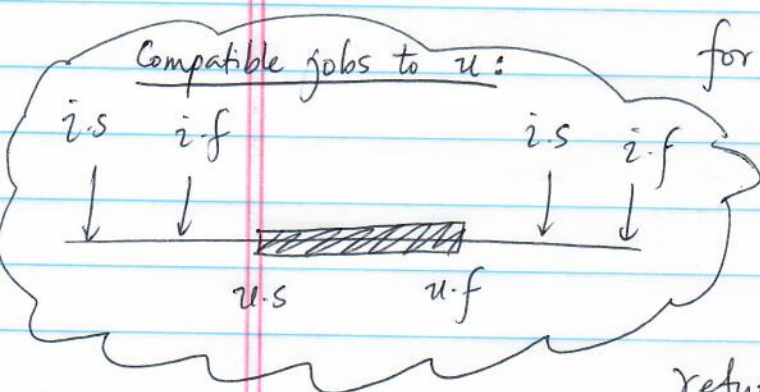 Compatible jobs to u:
for
i.s i.f i.s i.f
u.s u.f